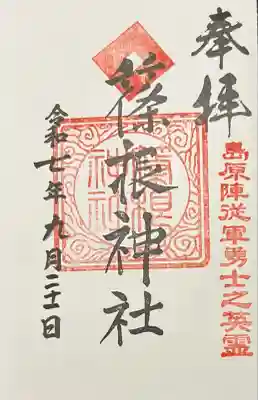 奉拝
島原陣従軍勇士之英霊
篠根神社
令和七年九月二十一日